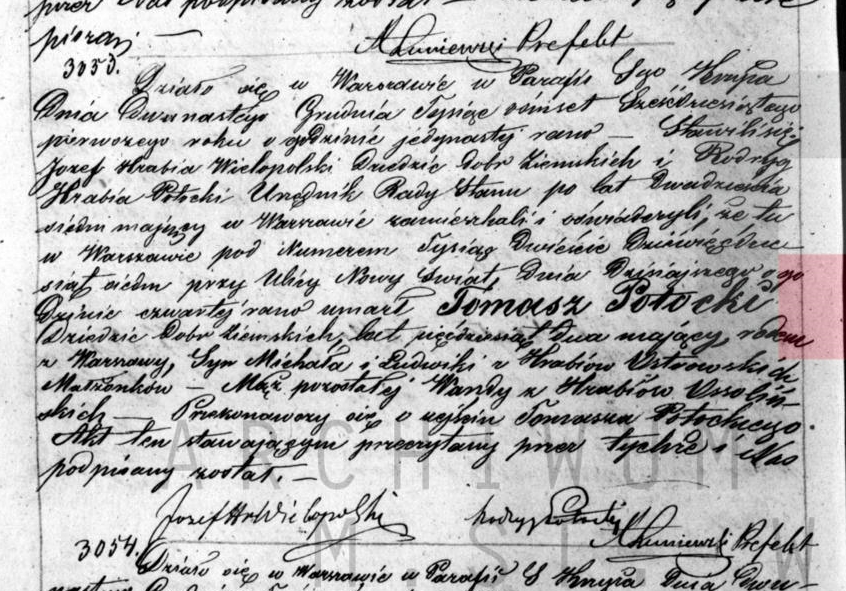 przez Nas podpisany został
pisząj —
A Łuniewski Prefekt
3053.
Działo się w Warszawie w Parafii Sgo Krzyża
Dnia Dwunastego Grudnia Tysiąc ośmset Sześćdziesiątego
pierwszego roku o godzinie jedynastej rano — Stawili się,
Jozef Hrabia Wielopolski Dziedzic Dobr Ziemskich i Rodryg
Hrabia Potocki Urzędnik Rady Stanu po lat Dwadzieścia
siedm mający w Warszawie zamieszkali i oświadczyli, że tu
w Warszawie pod Numerem Tysiąc Dwieście Dziewięćdzie
siąt siedm przy Ulicy Nowy Świat, Dnia Dzisiajszego o go
Dzinie czwartej rano umarł Tomasz Potocki
Dziedzic Dobr Ziemskich, lat pięćdziesiąt dwa mający, rodem
z Warszawy, Syn Michała i Ludwiki z Hrabiów Ostrowskich
Małżonków — Mąż pozostałej Wandy z Hrabiów Ossoliń-
skich — Przekonawszy się o zejściu Tomasza Potockiego.
Akt ten stawającym przeczytany przez tychże i Nas
podpisany został. —
ARCHIWUM
Jozef Hr Wielopolski Rodryg Potocki
A Łuniewski Prefekt
M. ST. W
3054.
Działo się w Warszawie w Parafii S Krzyża Dnia Dwu-